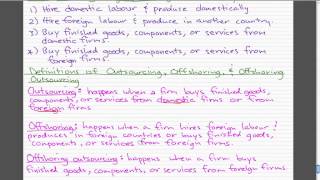 1) Hire domestic labour & produce domestically
2) Hire foreign labour & produce in another country.
3) Buy finished goods, components, or services from
domestic firms.
4) Buy finished goods, components, or services from
foreign firms.
Definitions of Outsourcing, Offshoring, & Offshoring
Outsourcing
Outsourcing: happens when a firm buys finished goods,
components, or services from domestic firms or from
foreign firms
Offshoring: happens when a firm hires foreign labour &
produces in foreign countries or buys finished goods,
components, or services from foreign firms.
Offshoring outsourcing: happens when a firm buys
finished goods, components, or services from foreign firms.